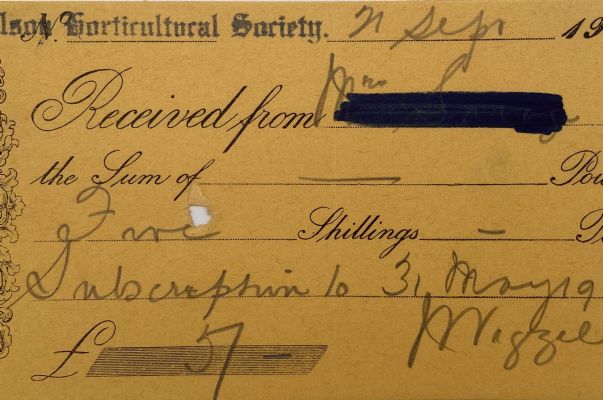 lson Horticultural Society. 21 Sept 19
No.
Received from Mrs
the Sum of — Pou
Five Shillings -
Subscription to 31 May 19
£ 5/-